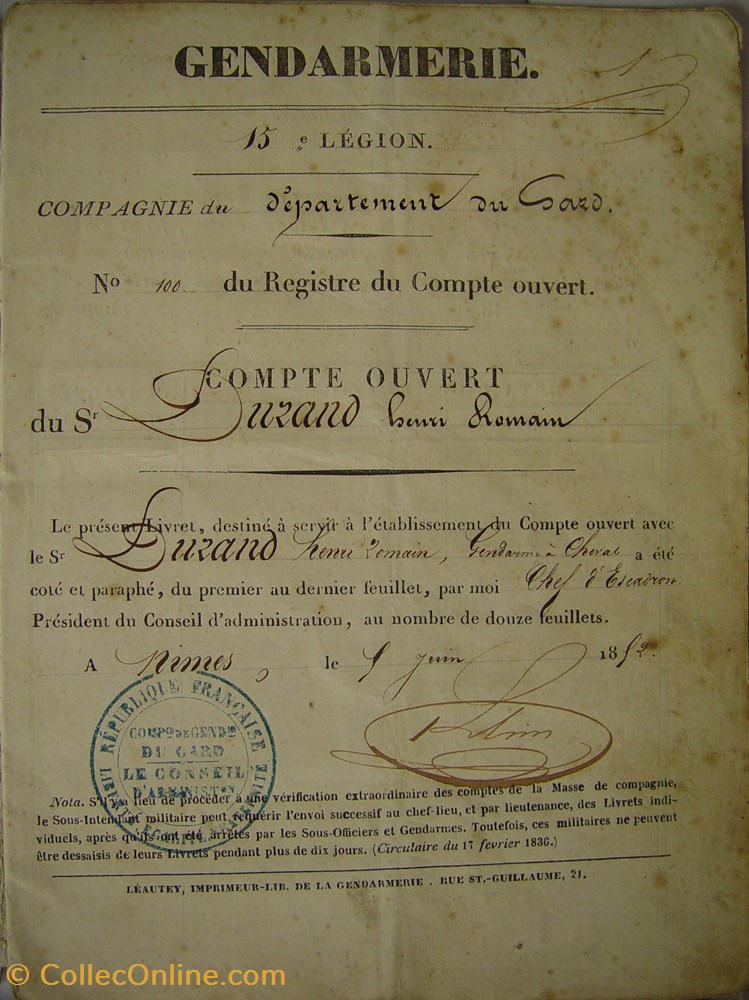 GENDARMERIE.
15 e LÉGION.
COMPAGNIE du département du Gard.
No 100 du Registre du Compte ouvert.
COMPTE OUVERT
du Sr Durand henri Romain
Le présent Livret, destiné à servir à l'établissement du Compte ouvert avec
le Sr Durand henri Romain, Gendarme à Cheval a été
coté et paraphé, du premier au dernier feuillet, par moi Chef d'Escadron
Président du Conseil d'administration, au nombre de douze feuillets.
A Nimes, le 5 juin 1852.
RÉPUBLIQUE FRANÇAISE
COMPie DE GENDie
DU GARD
LE CONSEIL
D'ADMINISTON
Nota. S'il y a lieu de procéder à une vérification extraordinaire des comptes de la Masse de compagnie,
le Sous-Intendant militaire peut requérir l'envoi successif au chef-lieu, et par lieutenance, des Livrets indi-
viduels, après qu'ils ont été arrêtés par les Sous-Officiers et Gendarmes. Toutefois, ces militaires ne peuvent
être dessaisis de leurs Livrets pendant plus de dix jours. (Circulaire du 17 février 1836.)
LÉAUTEY, IMPRIMEUR-LIB. DE LA GENDARMERIE, RUE ST.-GUILLAUME, 21.
© CollecOnline.com